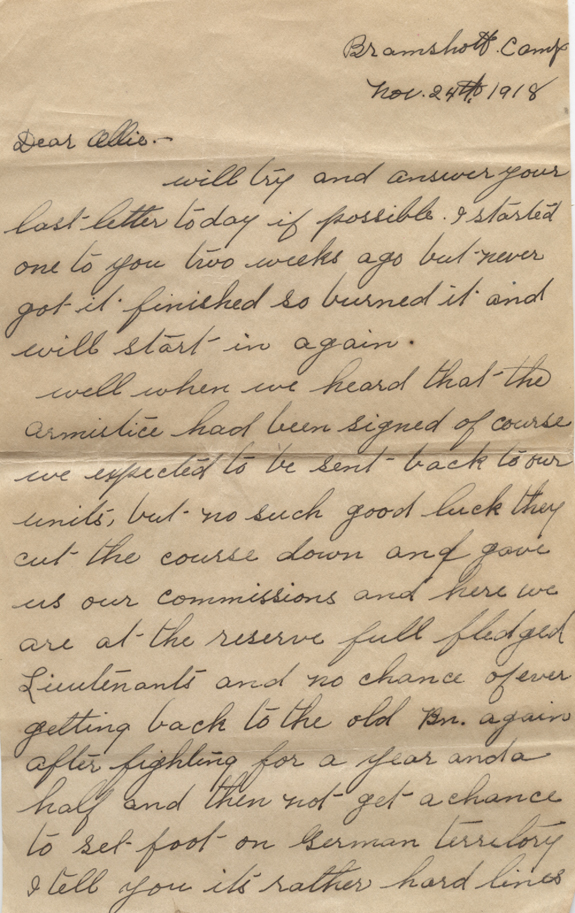 Bramshott Camp
Nov. 24th, 1918
Dear Allie.-
will try and answer your
last letter today if possible. I started
one to you two weeks ago but never
got it finished so burned it and
will start in again.
well when we heard that the
armistice had been signed of course
we expected to be sent back to our
units, but no such good luck they
cut the course down and gave
us our commissions and here we
are at the reserve full fledged
Lieutenants and no chance of ever
getting back to the old Bn. again
after fighting for a year and a
half and then not get a chance
to set foot on German territory
I tell you its rather hard lines